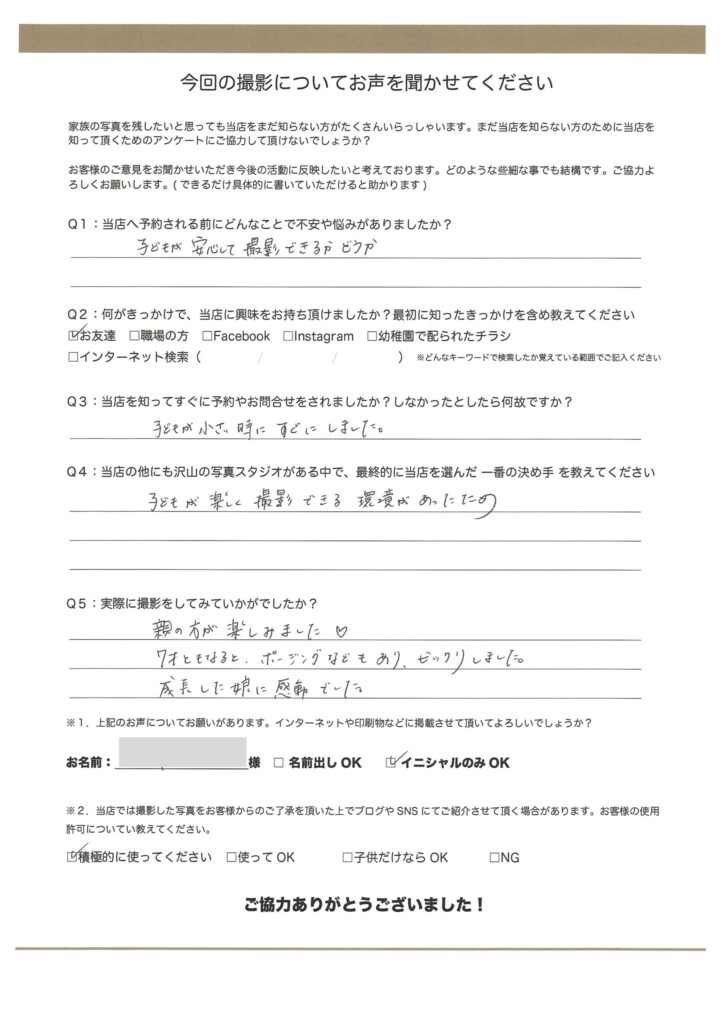 今回の撮影についてお声を聞かせてください
家族の写真を残したいと思っても当店をまだ知らない方がたくさんいらっしゃいます。まだ当店を知らない方のために当店を
知って頂くためのアンケートにご協力して頂けないでしょうか？
お客様のご意見をお聞かせいただき今後の活動に反映したいと考えております。どのような些細な事でも結構です。ご協力よ
ろしくお願いします。( できるだけ具体的に書いていただけると助かります )
Q1：当店へ予約される前にどんなことで不安や悩みがありましたか？
子どもが 安心して 撮影できるか どうか
Q2：何がきっかけで、当店に興味をお持ち頂けましたか？最初に知ったきっかけを含め教えてください
☑お友達 □職場の方 □Facebook □Instagram □幼稚園で配られたチラシ
□インターネット検索（ / / ） ※どんなキーワードで検索したか覚えている範囲でご記入ください
Q3：当店を知ってすぐに予約やお問合せをされましたか？しなかったとしたら何故ですか？
子どもが 小さい 時に すぐに しました。
Q4：当店の他にも沢山の写真スタジオがある中で、最終的に当店を選んだ 一番の決め手 を教えてください
子どもが 楽しく 撮影 できる 環境が あったため
Q5：実際に撮影をしてみていかがでしたか？
親の方が 楽しみました ♡
7才ともなると、ポージングなども あり、ビックリしました。
成長した 娘に 感動でした。
※1．上記のお声についてお願いがあります。インターネットや印刷物などに掲載させて頂いてよろしいでしょうか？
お名前： 様 □ 名前出し OK ☑ イニシャルのみ OK
※2．当店では撮影した写真をお客様からのご了承を頂いた上でブログや SNS にてご紹介させて頂く場合があります。お客様の使用
許可についてい教えてください。
☑積極的に使ってください □使って OK □子供だけなら OK □NG
ご協力ありがとうございました！